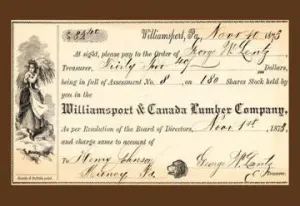 $32 40/ Williamsport, Pa, Nov 10 1873
At sight, please pay to the Order of George W. Lentz
Treasurer, Thirty Two 40/ Dollars,
being in full of Assessment No. 8 on 180 Shares Stock held by
you in the
Williamsport & Canada Lumber Company,
As per Resolution of the Board of Directors, Nov 1st, 1873,
and charge same to account of
To Henry Johnson George W. Lentz
Muncy Pa. Treasurer.